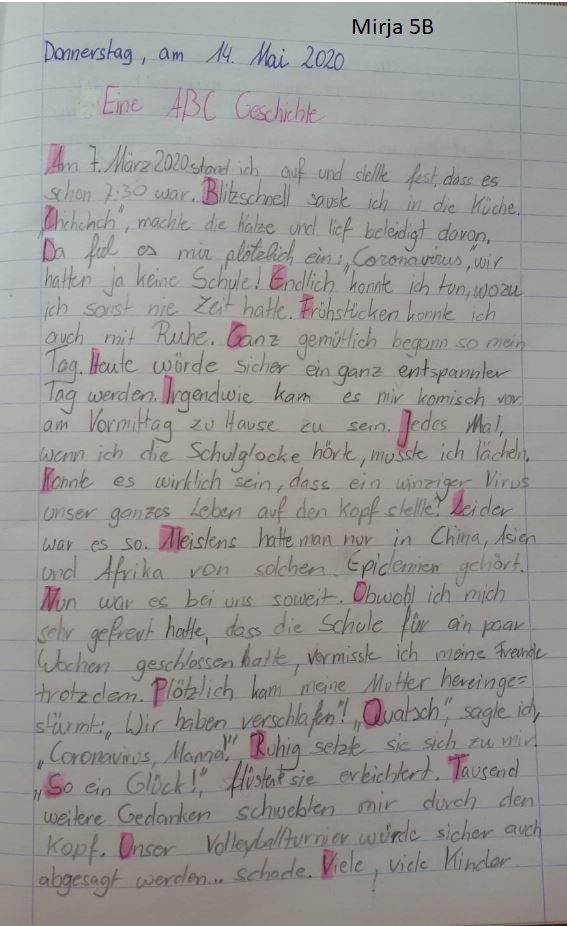 Mirja 5B
Donnerstag, am 14. Mai 2020
Eine ABC Geschichte
Am 7. März 2020 stand ich auf und stellte fest, dass es
schon 7:30 war. Blitzschnell sauste ich in die Küche.
„Chchchch", machte die Katze und lief beleidigt davon.
Da fiel es mir plötzlich ein: „Coronavirus", wir
hatten ja keine Schule! Endlich konnte ich tun, wozu
ich sonst nie Zeit hatte. Frühstücken konnte ich
auch mit Ruhe. Ganz gemütlich begann so mein
Tag. Heute würde sicher ein ganz entspannter
Tag werden. Irgendwie kam es mir komisch vor
am Vormittag zu Hause zu sein. Jedes Mal,
wenn ich die Schulglocke hörte, musste ich lächeln.
Konnte es wirklich sein, dass ein winziger Virus
unser ganzes Leben auf den Kopf stellte? Leider
war es so. Meistens hatte man nur in China, Asien
und Afrika von solchen Epidemien gehört.
Nun war es bei uns soweit. Obwohl ich mich
sehr gefreut hatte, dass die Schule für ein paar
Wochen geschlossen hatte, vermisste ich meine Freunde
trotzdem. Plötzlich kam meine Mutter hereinge=
stürmt: „Wir haben verschlafen"! „Quatsch", sagte ich,
„Coronavirus, Mama!" Ruhig setzte sie sich zu mir.
„So ein Glück!", flüstert sie erleichtert. Tausend
weitere Gedanken schwebten mir durch den
Kopf. Unser Volleyballturnier würde sicher auch
abgesagt werden... schade. Viele, viele Kinder